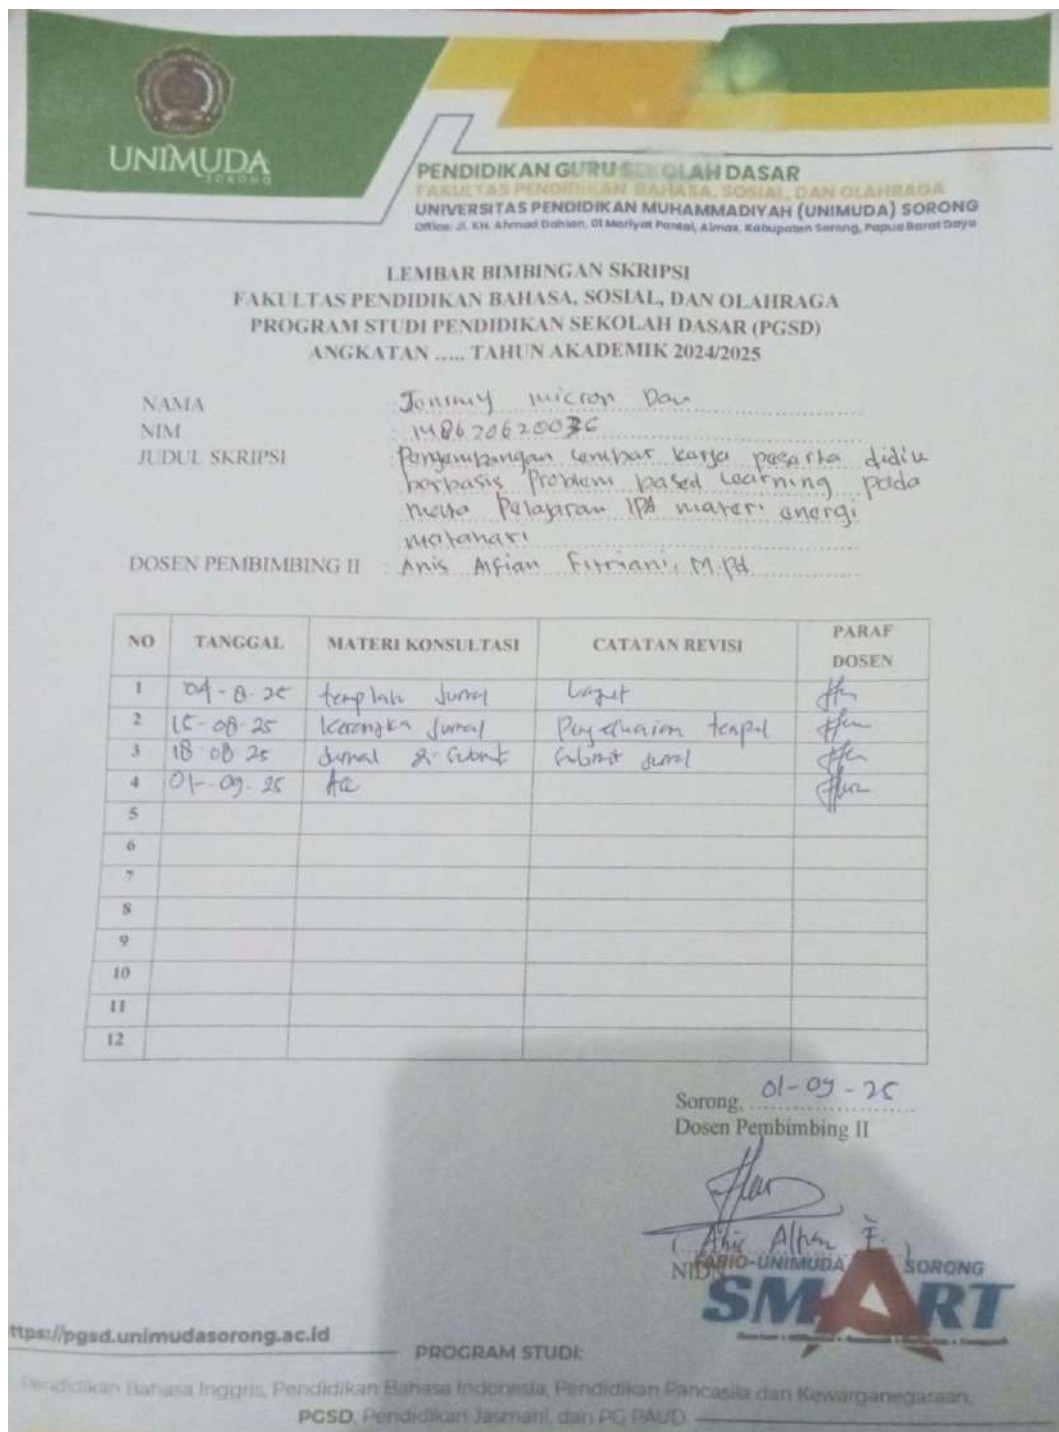 UNIMUDA
SORONG
PENDIDIKAN GURU SEKOLAH DASAR
FAKULTAS PENDIDIKAN BAHASA, SOSIAL, DAN OLAHRAGA
UNIVERSITAS PENDIDIKAN MUHAMMADIYAH (UNIMUDA) SORONG
Office: Jl. KH. Ahmad Dahlan, 01 Mariyat Pantai, Aimas, Kabupaten Sorong, Papua Barat Daya
LEMBAR BIMBINGAN SKRIPSI
FAKULTAS PENDIDIKAN BAHASA, SOSIAL, DAN OLAHRAGA
PROGRAM STUDI PENDIDIKAN SEKOLAH DASAR (PGSD)
ANGKATAN ..... TAHUN AKADEMIK 2024/2025
NAMA : Jommy micron Dau
NIM : 148620620036
JUDUL SKRIPSI : Pengembangan lembar kerja peserta didik
berbasis Problem based Learning pada
mata Pelajaran IPA materi energi
matahari
DOSEN PEMBIMBING II : Anis Alfian Fitriani, M.Pd
NO TANGGAL MATERI KONSULTASI CATATAN REVISI PARAF DOSEN
1 04-8-25 template Jurnal Lanjut
2 15-08-25 Kerangka Jurnal
3 18-08-25 Jurnal & Submit Submit Jurnal
4 01-09-25 Acc
5
6
7
8
9
10
11
12
Sorong, 01-09-25
Dosen Pembimbing II
( Anis Alfian F. )
NIDN
FABIO-UNIMUDA SORONG
SMART
https://pgsd.unimudasorong.ac.id
PROGRAM STUDI:
Pendidikan Bahasa Inggris, Pendidikan Bahasa Indonesia, Pendidikan Pancasila dan Kewarganegaraan,
PGSD, Pendidikan Jasmani, dan PG PAUD